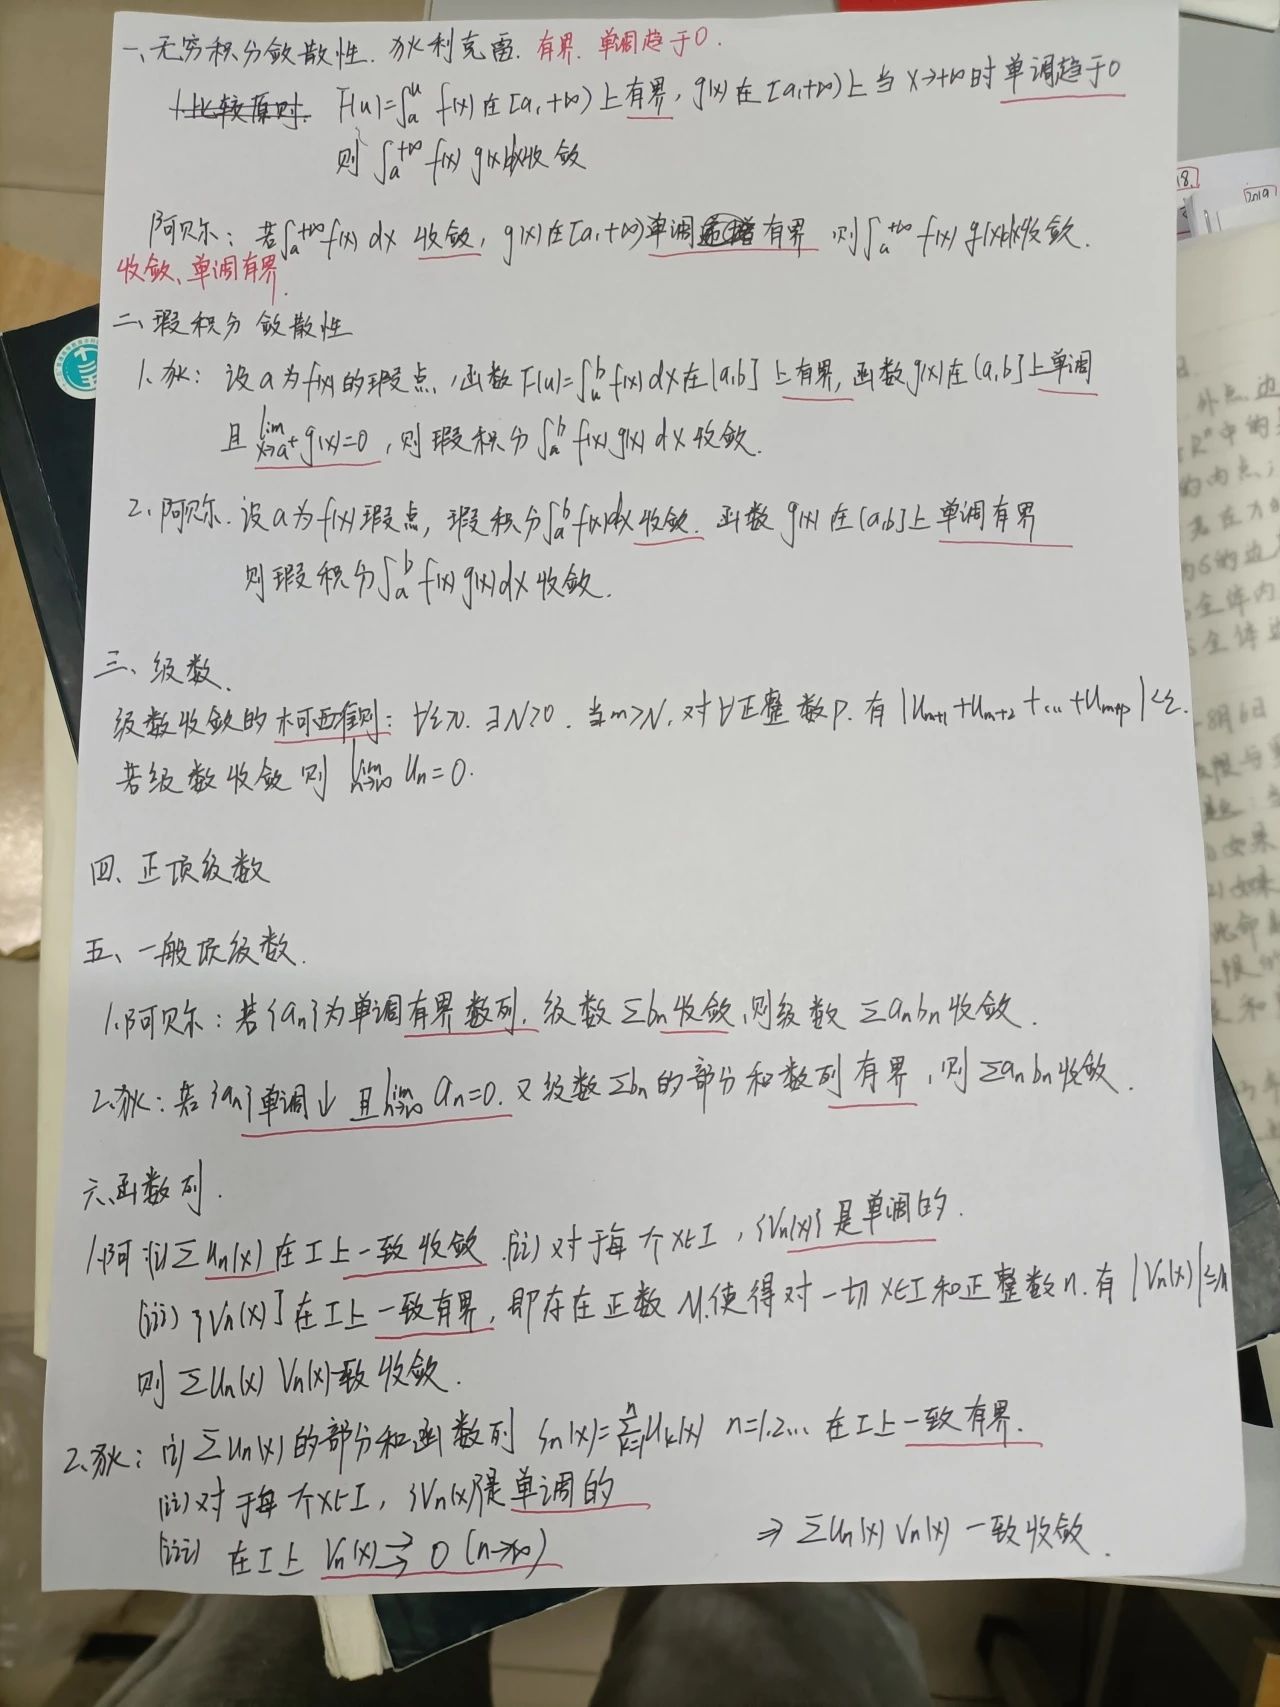 一、无穷积分敛散性. 狄利克雷. 有界. 单调趋于0.
1.比较原则. F(u)=∫ₐᵘ f(x) 在[a,+∞) 上有界, g(x) 在[a,+∞)上当 x→+∞时 单调趋于0
则 ∫ₐ⁺∞ f(x) g(x)dx收敛
阿贝尔: 若∫ₐ⁺∞ f(x) dx 收敛, g(x)在[a,+∞)单调 有界 则∫ₐ⁺∞ f(x) g(x)dx收敛.
收敛、单调有界.
二、瑕积分敛散性
1、狄: 设 a 为 f(x) 的瑕点, 函数 F(u)=∫ᵤᵇ f(x) dx 在(a,b] 上有界, 函数 g(x)在(a,b]上单调
且 lim x→a⁺ g(x)=0, 则瑕积分∫ₐᵇ f(x)g(x) dx 收敛.
2、阿贝尔. 设 a 为 f(x) 瑕点, 瑕积分∫ₐᵇ f(x)dx 收敛. 函数 g(x) 在(a,b]上单调有界
则瑕积分∫ₐᵇ f(x)g(x)dx 收敛.
三、级数.
级数收敛的柯西准则: ∀ε>0. ∃N>0. 当m>N, 对∀正整数P. 有 |Uₘ₊₁+Uₘ₊₂+…+Uₘ₊ₚ|<ε.
若级数收敛则 lim n→∞ Uₙ=0.
四、正项级数
五、一般项级数.
1.阿贝尔: 若{aₙ}为单调有界数列. 级数 Σbₙ收敛, 则级数 Σaₙbₙ收敛.
2.狄: 若{aₙ}单调↓ 且lim n→∞ aₙ=0. 又级数Σbₙ的部分和数列有界, 则 Σaₙbₙ收敛.
六、函数列.
1.阿: (i) Σuₙ(x) 在I上一致收敛. (ii) 对于每个 x∈I, {Vₙ(x)}是单调的.
(iii) {Vₙ(x)} 在I上一致有界, 即存在正数 M.使得对一切 x∈I和正整数n. 有 |Vₙ(x)|≤M
则 Σuₙ(x) Vₙ(x)一致收敛.
2.狄: (i) Σuₙ(x) 的部分和函数列 Sₙ(x)=∑ₖ₌₁ⁿ uₖ(x) n=1.2... 在I上一致有界.
(ii) 对于每个x∈I, {Vₙ(x)}是单调的
(iii) 在I上 Vₙ(x)⇉0 (n→∞) ⇒ Σuₙ(x) Vₙ(x) 一致收敛.
18.
2019